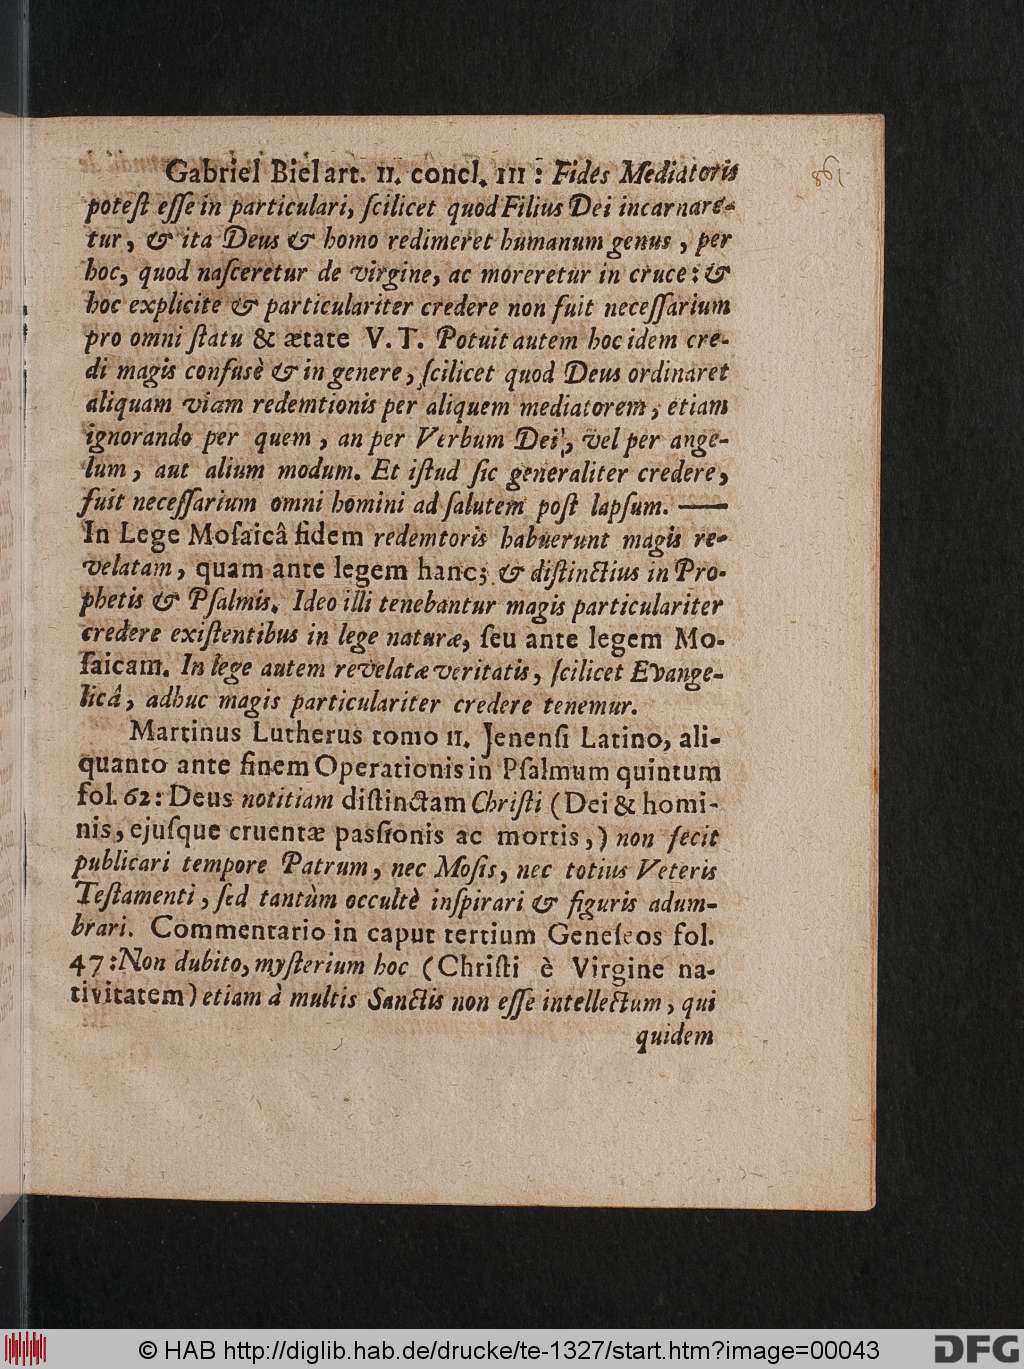 Gabriel Biel art. II. concl. III: Fides Mediatoris
potest esse in particulari, scilicet quod Filius Dei incarnare-
tur, & ita Deus & homo redimeret humanum genus, per
hoc, quod nasceretur de virgine, ac moreretur in cruce: &
hoc explicite & particulariter credere non fuit necessarium
pro omni statu & ætate V. T. Potuit autem hoc idem cre-
di magis confusè & in genere, scilicet quod Deus ordinaret
aliquam viam redemtionis per aliquem mediatorem, etiam
ignorando per quem, an per Verbum Dei, vel per ange-
lum, aut alium modum. Et istud sic generaliter credere,
fuit necessarium omni homini ad salutem post lapsum. —
In Lege Mosaicâ fidem redemtoris habuerunt magis re-
velatam, quam ante legem hanc; & distinctius in Pro-
phetis & Psalmis. Ideo illi tenebantur magis particulariter
credere existentibus in lege naturæ, seu ante legem Mo-
saicam. In lege autem revelatæ veritatis, scilicet Evange-
licâ, adhuc magis particulariter credere tenemur.
Martinus Lutherus tomo II. Jenensi Latino, ali-
quanto ante finem Operationis in Psalmum quintum
fol. 62: Deus notitiam distinctam Christi (Dei & homi-
nis, ejusque cruentæ passionis ac mortis,) non fecit
publicari tempore Patrum, nec Mosis, nec totius Veteris
Testamenti, sed tantùm occultè inspirari & figuris adum-
brari. Commentario in caput tertium Geneseos fol.
47: Non dubito, mysterium hoc (Christi è Virgine na-
tivitatem) etiam à multis Sanctis non esse intellectum, qui
quidem
© HAB http://diglib.hab.de/drucke/te-1327/start.htm?image=00043
DFG